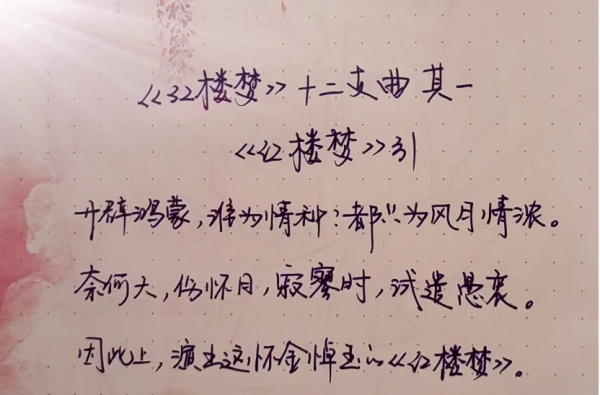 《红楼梦》十二支曲其一
《红楼梦》引
开辟鸿蒙，谁为情种？都只为风月情浓。
奈何天，伤怀日，寂寥时，试遣愚衷。
因此上，演出这怀金悼玉的《红楼梦》。